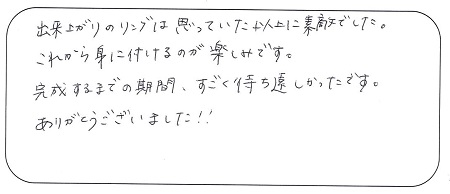 出来上がりのリングは思っていた以上に素敵でした。
これから身に付けるのが楽しみです。
完成するまでの期間、すごく待ち遠しかったです。
ありがとうございました!!